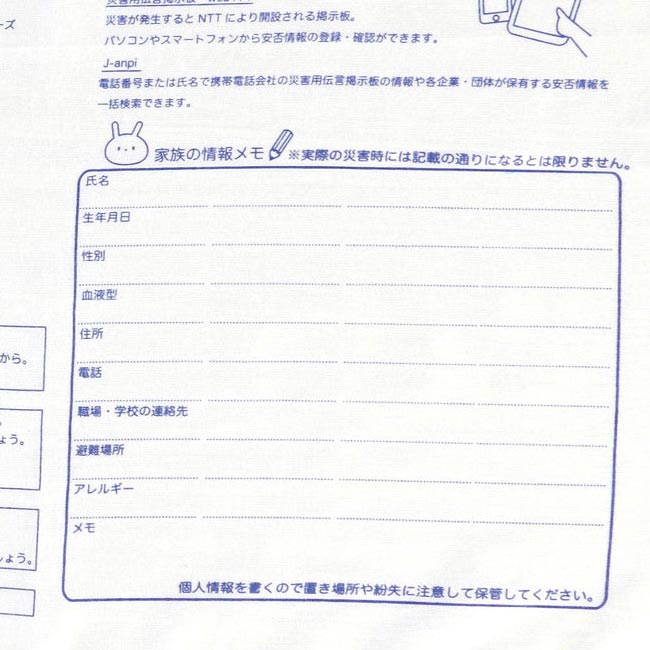 ーズ
災害が発生すると NTT により開設される掲示板。
パソコンやスマートフォンから安否情報の登録・確認ができます。
J-anpi
電話番号または氏名で携帯電話会社の災害用伝言掲示板の情報や各企業・団体が保有する安否情報を
一括検索できます。
家族の情報メモ ※実際の災害時には記載の通りになるとは限りません。
氏名
生年月日
性別
血液型
住所
電話
職場・学校の連絡先
避難場所
アレルギー
メモ
個人情報を書くので置き場所や紛失に注意して保管してください。
から。
ょう。
しょう。